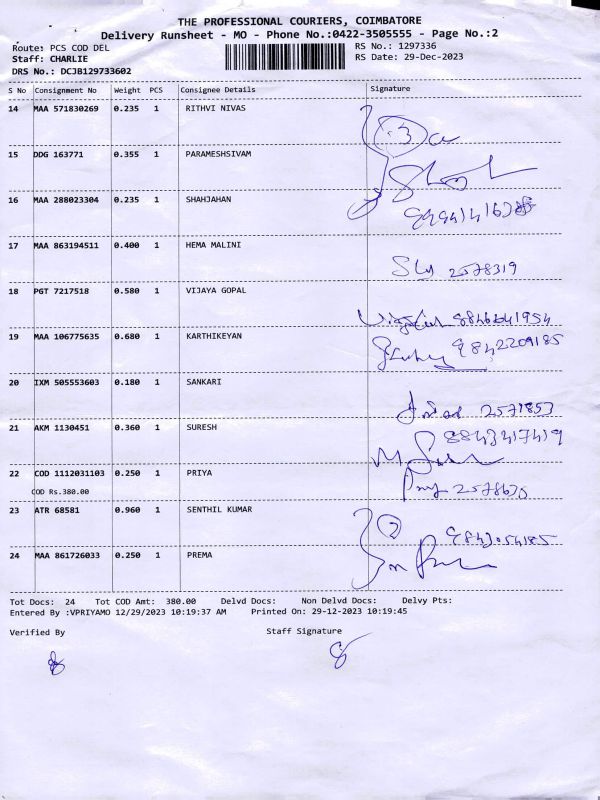 THE PROFESSIONAL COURIERS, COIMBATORE
Delivery Runsheet - MO - Phone No.:0422-3505555 - Page No.:2
Route: PCS COD DEL RS No.: 1297336
Staff: CHARLIE RS Date: 29-Dec-2023
DRS No.: DCJB129733602
S No Consignment No Weight PCS Consignee Details Signature
14 MAA 571830269 0.235 1 RITHVI NIVAS
15 DDG 163771 0.355 1 PARAMESHSIVAM
16 MAA 288023304 0.235 1 SHAHJAHAN
17 MAA 863194511 0.400 1 HEMA MALINI
2578319
18 PGT 7217518 0.580 1 VIJAYA GOPAL
19 MAA 106775635 0.680 1 KARTHIKEYAN
9842209185
20 IXM 505553603 0.180 1 SANKARI
2571853
21 AKM 1130451 0.360 1 SURESH
8843417419
22 COD 1112031103 0.250 1 PRIYA
COD Rs.380.00
23 ATR 68581 0.960 1 SENTHIL KUMAR
24 MAA 861726033 0.250 1 PREMA
Tot Docs: 24 Tot COD Amt: 380.00 Delvd Docs: Non Delvd Docs: Delvy Pts:
Entered By :VPRIYAMO 12/29/2023 10:19:37 AM Printed On: 29-12-2023 10:19:45
Verified By Staff Signature